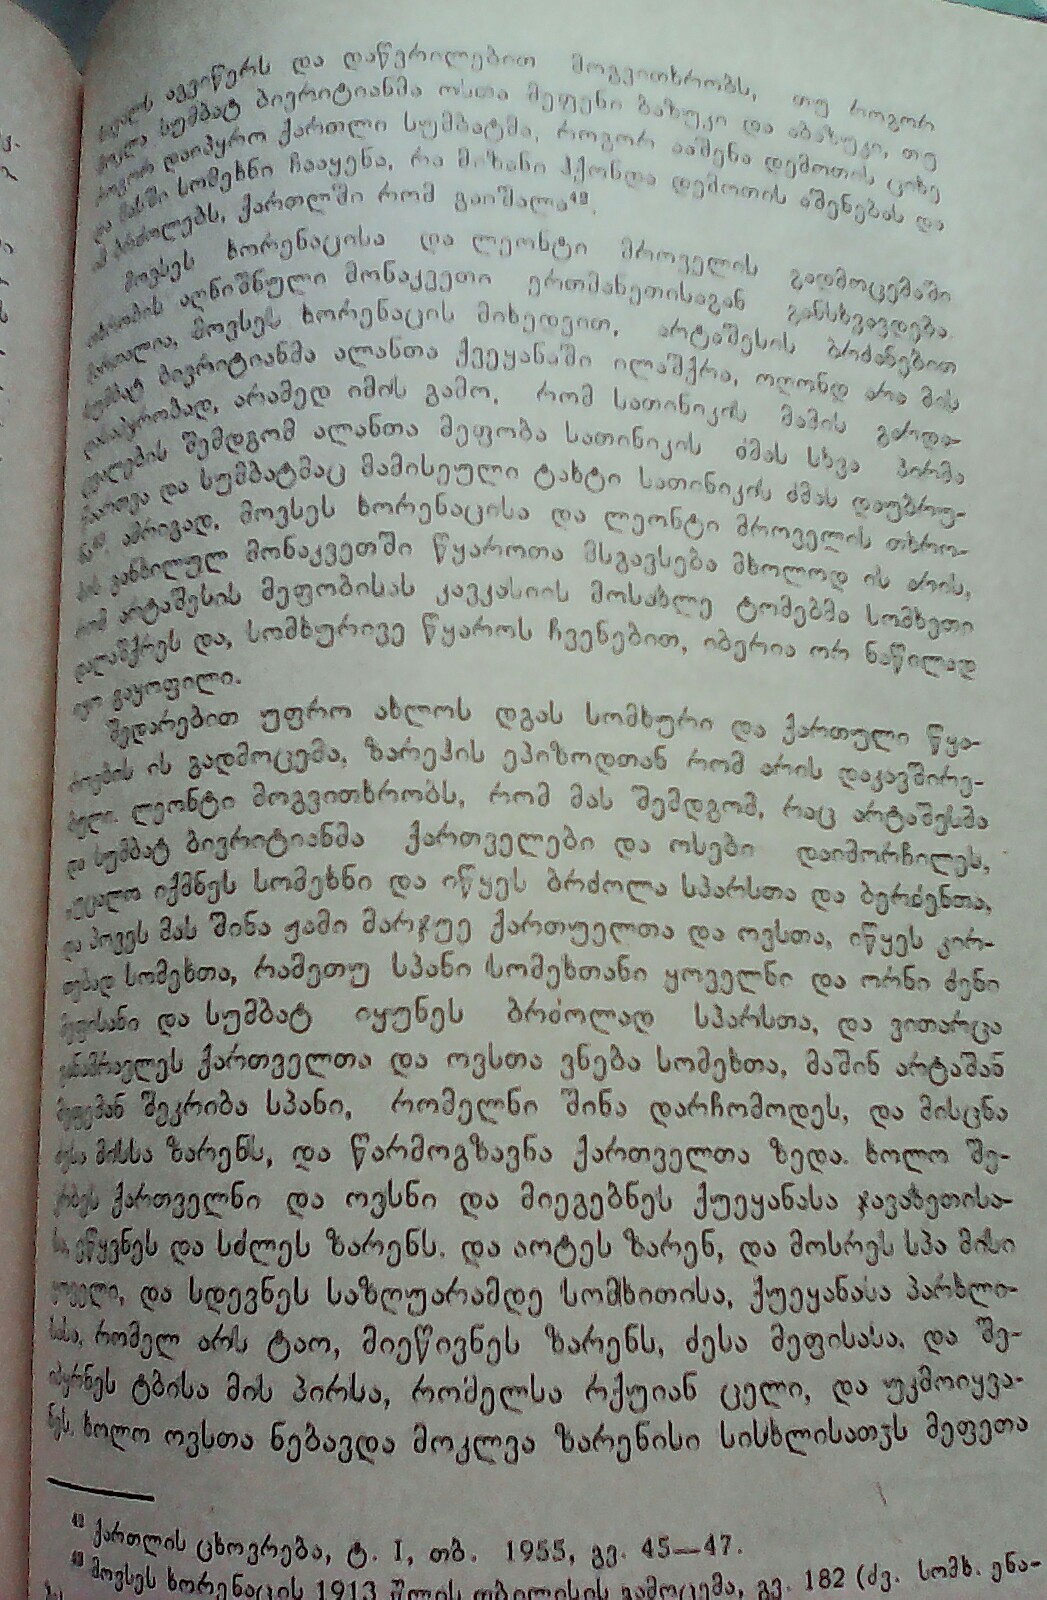 აგვიწერს და დაწვრილებით მოგვითხრობს, თუ როგორ
მოკლა სუმბატ ბივრიტიანმა ოსთა მეფენი ბაზუკი და აბაზუკი, თუ
როგორ დაიპყრო ქართლი სუმბატმა, როგორ ააშენა დემოთის ციხე
და მასში სომეხნი ჩააყენა, რა მიზანი ჰქონდა დემოთის აშენებას და
იმ ბრძოლებს, ქართლში რომ გაიშალა⁴².
მოვსეს ხორენაცისა და ლეონტი მროველის გადმოცემაში
თხრობის აღნიშნული მონაკვეთი ერთმანეთისაგან განსხვავდება.
მართალია, მოვსეს ხორენაცის მიხედვით, არტაშესის ბრძანებით
სუმბატ ბივრიტიანმა ალანთა ქვეყანაში ილაშქრა, ოღონდ არა მის
დასაპყრობად, არამედ იმის გამო, რომ სათინიკის მამის გარდა-
ცვალების შემდგომ ალანთა მეფობა სათინიკის ძმას სხვა პირმა
წაართვა და სუმბატმაც მამისეული ტახტი სათინიკის ძმას დაუბრუ-
ნა⁴³ ამრიგად, მოვსეს ხორენაცისა და ლეონტი მროველის თხრო-
ბის განხილულ მონაკვეთში წყაროთა მსგავსება მხოლოდ ის არის,
რომ არტაშესის მეფობისას კავკასიის მოსახლე ტომებმა სომხეთი
დალაშქრეს და, სომხურივე წყაროს ჩვენებით, იბერია ორ ნაწილად
იყო გაყოფილი.
შედარებით უფრო ახლოს დგას სომხური და ქართული წყა-
როების ის გადმოცემა, ზარეჰის ეპიზოდთან რომ არის დაკავშირე-
ბული. ლეონტი მოგვითხრობს, რომ მას შემდგომ, რაც არტაშესმა
და სუმბატ ბივრიტიანმა ქართველები და ოსები დაიმორჩილეს,
უცალო იქმნეს სომეხნი და იწყეს ბრძოლა სპარსთა და ბერძენთა,
და პოვეს მას შინა ჟამი მარჯუე ქართუელთა და ოვსთა, იწყეს კირ-
თებად სომეხთა, რამეთუ სპანი სომეხთანი ყოველნი და ორნი ძენი
მეფისანი და სუმბატ იყუნეს ბრძოლად სპარსთა, და ვითარცა
განამრავლეს ქართველთა და ოვსთა ვნება სომეხთა, მაშინ არტაშან
მეფემან შეკრიბა სპანი, რომელნი შინა დარჩომოდეს, და მისცნა
ძესა მისსა ზარენს, და წარმოგზავნა ქართველთა ზედა. ხოლო შე-
კრბეს ქართველნი და ოვსნი და მიეგებნეს ქუეყანასა ჯავახეთისა-
სა, ეწყვნეს და სძლეს ზარენს. და აოტეს ზარენ, და მოსრეს სპა მისი
ყოველი, და სდევნეს საზღუარამდე სომხითისა, ქუეყანასა პარხლი-
სასა, რომელ არს ტაო, მიეწივნეს ზარენს, ძესა მეფისასა, და შე-
იპყრნეს ტბისა მის პირსა, რომელსა რქუიან ცელი, და უკმოიყვა-
ნეს. ხოლო ოვსთა ნებავდა მოკლვა ზარენისი სისხლისათჳს მეფეთა
⁴² ქართლის ცხოვრება, ტ. I, თბ. 1955, გვ. 45—47.
⁴³ მოვსეს ხორენაცის 1913 წლის თბილისის გამოცემა, გვ. 182 (ძვ. სომხ. ენა-